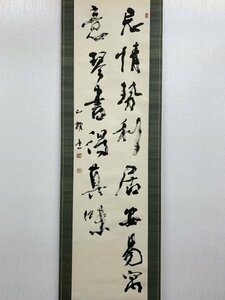 忘情勢利居安易寓
意琴書得真味